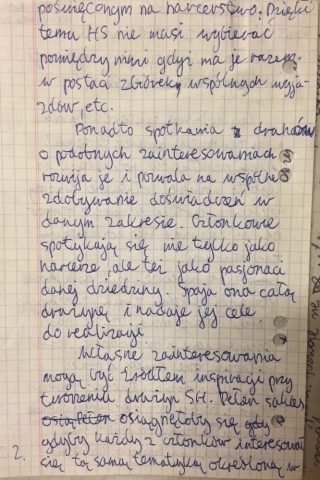 poświęconym na harcerstwo. Dzięki
temu HS nie musi wybierać
pomiędzy nimi gdyż ma je razem
w postaci zbiórek, wspólnych wyja-
zdów, etc.
Ponadto spotkania druhów
o podobnych zainteresowaniach
rozwija je i pozwala na wspólne
zdobywanie doświadczeń w
danym zakresie. Członkowie
spotykają się nie tylko jako
harcerze, ale też jako pasjonaci
danej dziedziny. Spaja ona całą
drużynę i nadaje jej cele
do realizacji.
Własne zainteresowania
mogą być źródłem inspiracji przy
tworzeniu drużyn SH. Pełen sukces
osiągnęłoby się
gdyby każdy z członków interesował
2. się tą samą tematyką określoną w